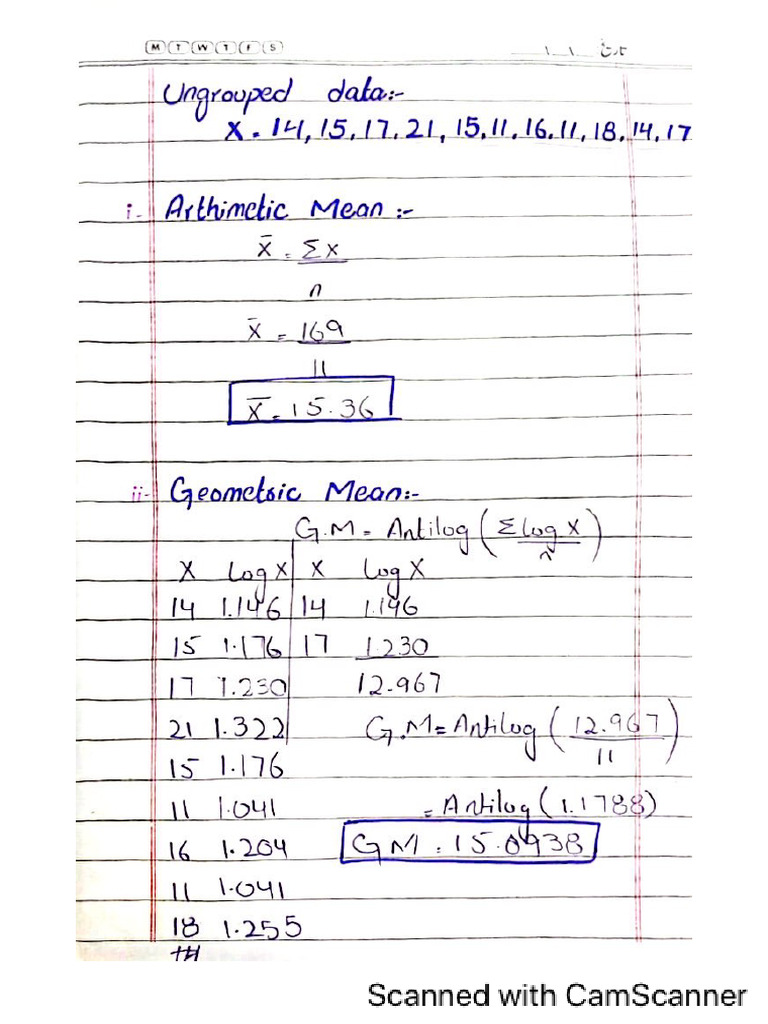 M T W T F S تاریخ
Ungrouped data:-
X = 14, 15, 17, 21, 15, 11, 16, 11, 18, 14, 17
i- Arthimetic Mean :-
X̄ = Σx
n
X̄ = 169
11
X̄ = 15.36
ii- Geometric Mean:-
G.M = Antilog ( Σ log X / n )
X Log X X Log X
14 1.146 14 1.146
15 1.176 17 1.230
17 1.230 12.967
21 1.322 G.M = Antilog ( 12.967 / 11 )
15 1.176
11 1.041 = Antilog (1.1788)
16 1.204 GM = 15.0938
11 1.041
18 1.255
Scanned with CamScanner